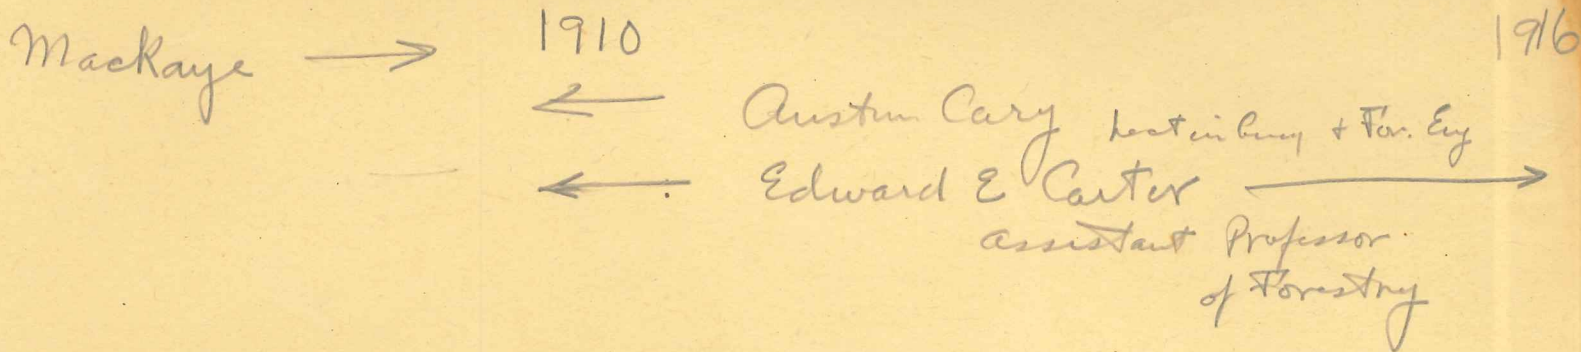 MacKaye → 1910 1916
← Austin Cary Lect in & For. Eng
← Edward E Carter →
Assistant Professor
of Forestry